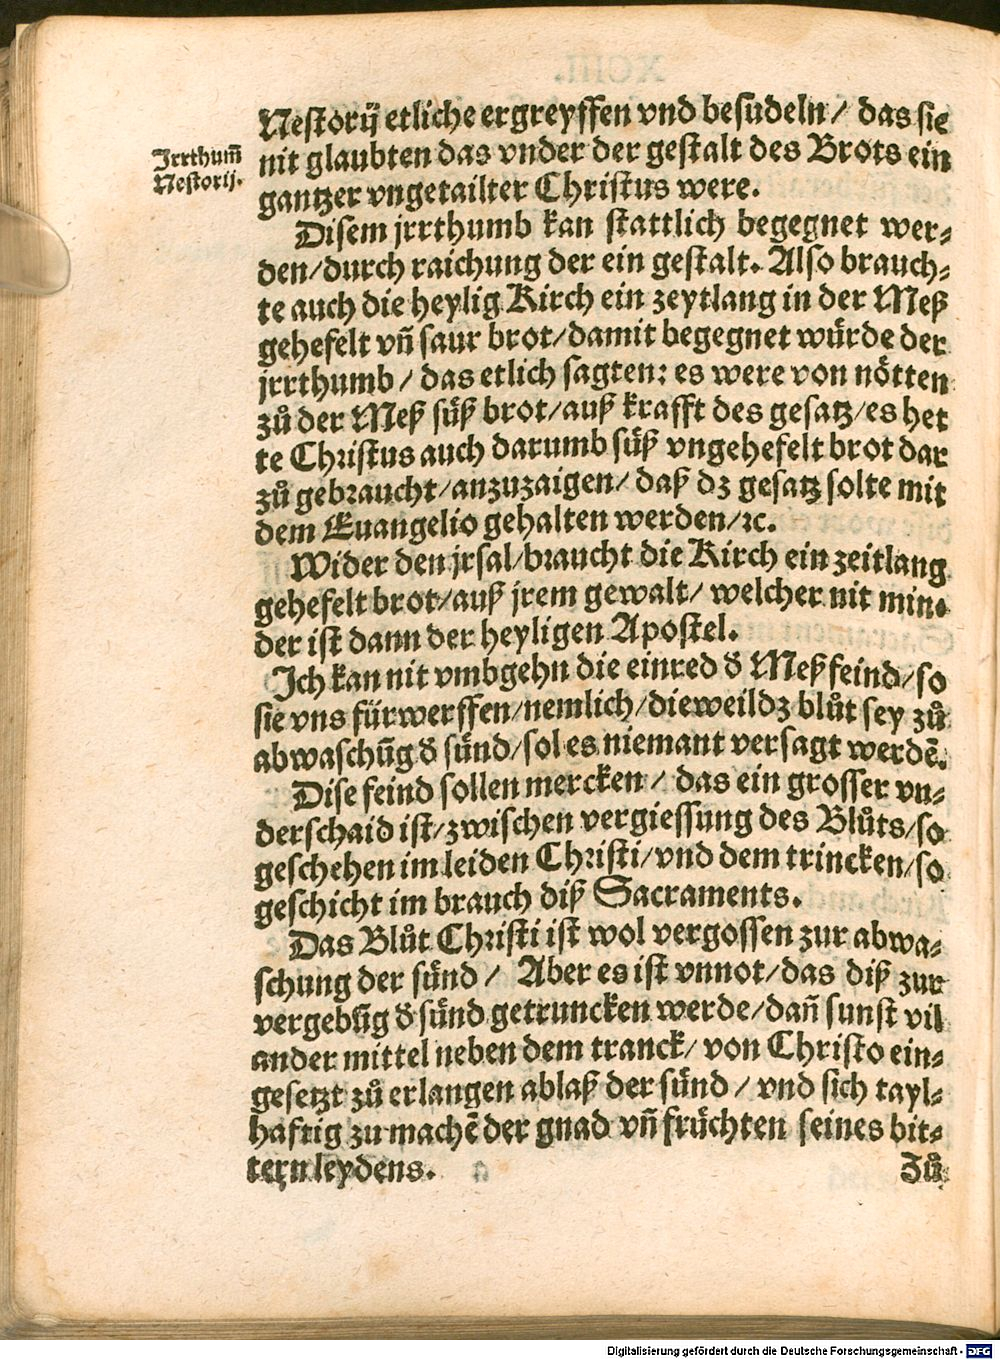 Nestorij etliche ergreyffen vnd besudeln / das sie
Jrrthum̃
Nestorij.
nit glaubten das vnder der gestalt des Brots ein
gantzer vngetailter Christus were.
Disem jrrthumb kan stattlich begegnet wer⸗
den/durch raichung der ein gestalt. Also brauch⸗
te auch die heylig Kirch ein zeytlang in der Meß
gehefelt vñ saur brot/damit begegnet wuͤrde der
jrrthumb / das etlich sagten: es were von noͤtten
zuͦ der Meß suͤß brot/auß krafft des gesatz/es het
te Christus auch darumb suͤß vngehefelt brot dar
zuͦ gebraucht/anzuzaigen/ daß dz gesatz solte mit
dem Euangelio gehalten werden/ꝛc.
Wider den jrsal/braucht die Kirch ein zeitlang
gehefelt brot/auß jrem gewalt/ welcher nit min⸗
der ist dann der heyligen Apostel.
Ich kan nit vmbgehn die einred d̕ Meßfeind/so
sie vns fürwerffen/nemlich/dieweil dz bluͦt sey zuͦ
abwaschũg d̕ suͤnd/sol es niemant versagt werdẽ.
Dise feind sollen mercken / das ein grosser vn⸗
derschaid ist/zwischen vergiessung des Bluͦts/so
geschehen im leiden Christi/vnd dem trincken/so
geschicht im brauch diß Sacraments.
Das Bluͦt Christi ist wol vergossen zur abwa⸗
schung der suͤnd / Aber es ist vnnot/das diß zur
vergebũg d̕ suͤnd getruncken werde/dañ sunst vil
ander mittel neben dem tranck/ von Christo ein⸗
gesetzt zuͦ erlangen ablaß der suͤnd / vnd sich tayl⸗
hafftig zu machẽ der gnad vñ fruͤchten seines bit⸗
tern leydens.
Zuͦ
Digitalisierung gefördert durch die Deutsche Forschungsgemeinschaft - DFG